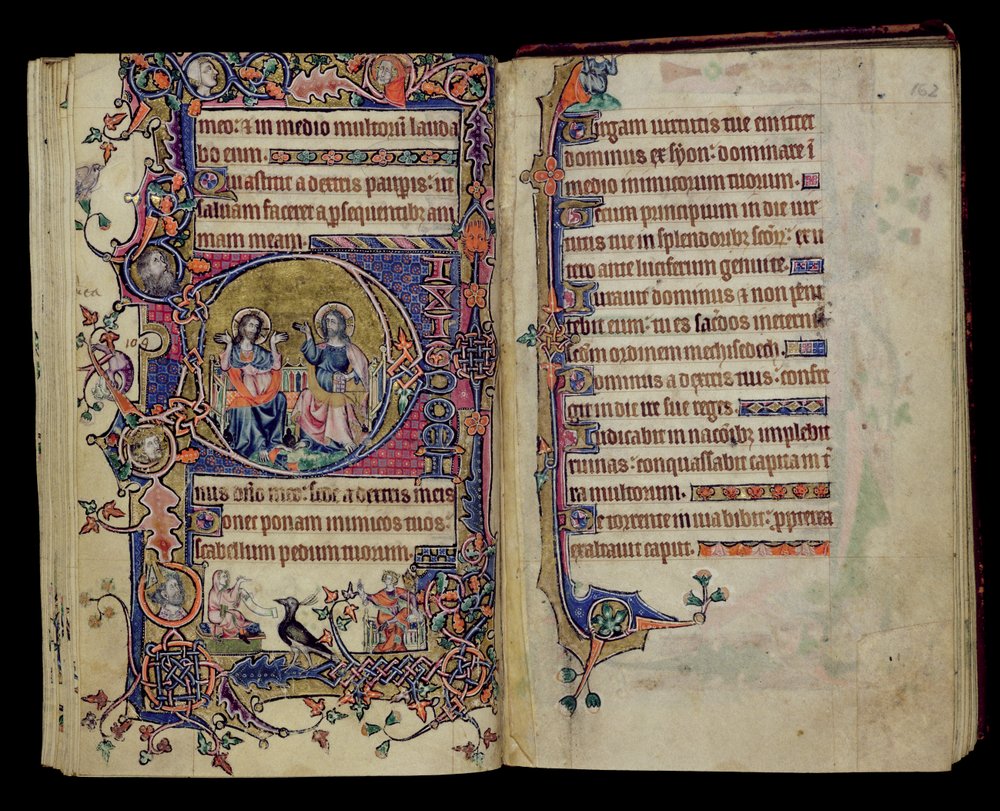 meo: & in medio multorū lauda
bo eum.
Quia astitit a dextris paupis: ut
saluam faceret a psequentibz ani
mam meam.
DIXIT DOMI
nus dño meo: sede a dextris meis
Donec ponam inimicos tuos:
scabellum pedum tuorum.
162
Virgam uirtutis tue emittet
dominus ex syon: dominare ī
medio inimicorum tuorum.
Tecum principium in die uir
tutis tue in splendoribz scōr: ex u
tero ante luciferum genui te.
Iurauit dominus & non peni
tebit eum: tu es sacdos in eternū
scdm ordinem melchisedech.
Dominus a dextris tuis: confre
git in die ire sue reges.
Iudicabit in nacōibz implebit
ruinas: conquassabit capita in t
ra multorum.
De torrente in uia bibit: ppterea
exaltauit caput.